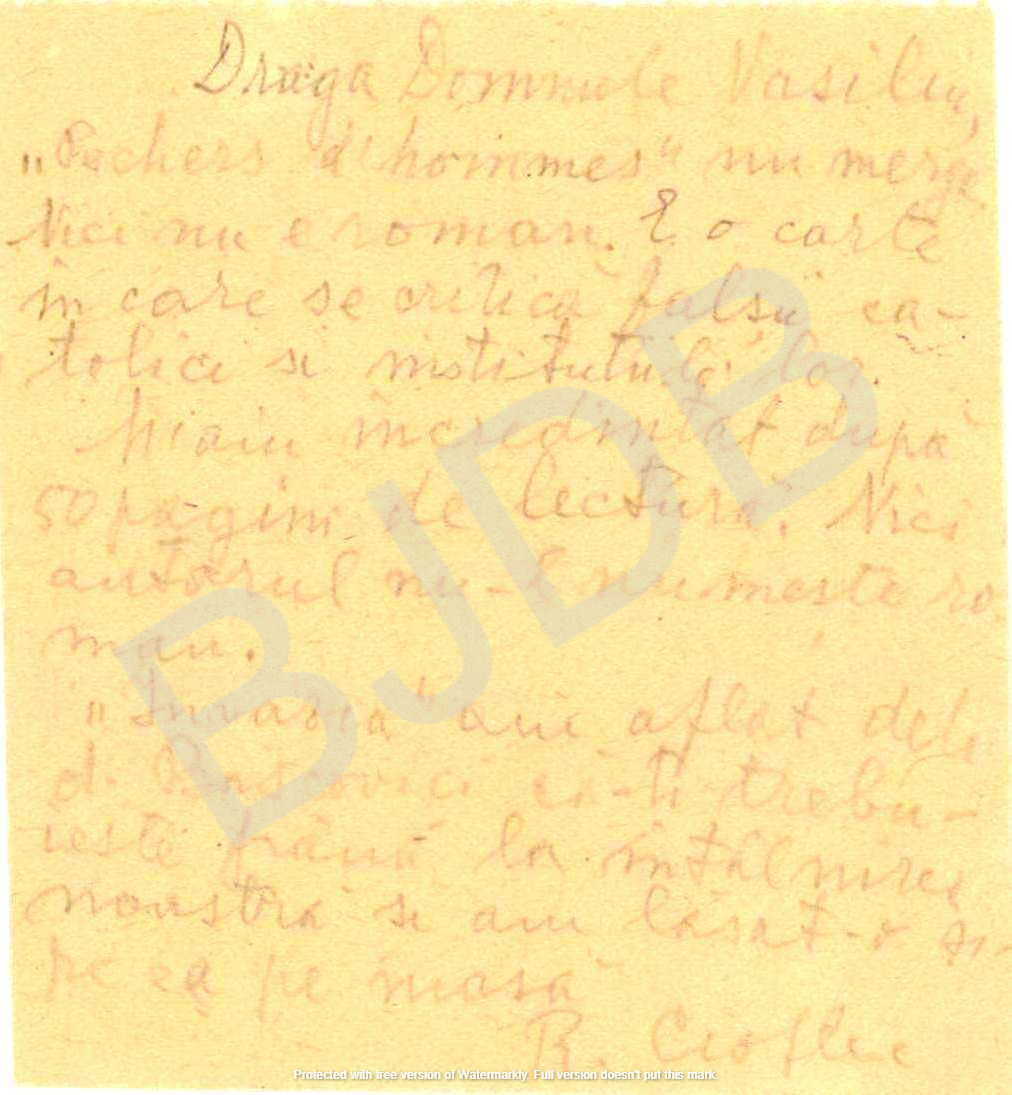 Draga Domnule Vasiliu,
„Pêchers d'hommes" nu merge
Nici nu e roman. E o carte
in care se critică falșii ca-
tolici si institutule lor.
M'am incredintat după
50 pagini de lectură. Nici
autorul nu-l numeste ro
man.
„Invazia" am aflat dela
d. că-ti trebu-
ieste până la intâlnirea
noastră si am lăsat-o si-
pe ea pe masă
R. Cioflec
BJDB
Protected with free version of Watermarkly. Full version doesn't put this mark.